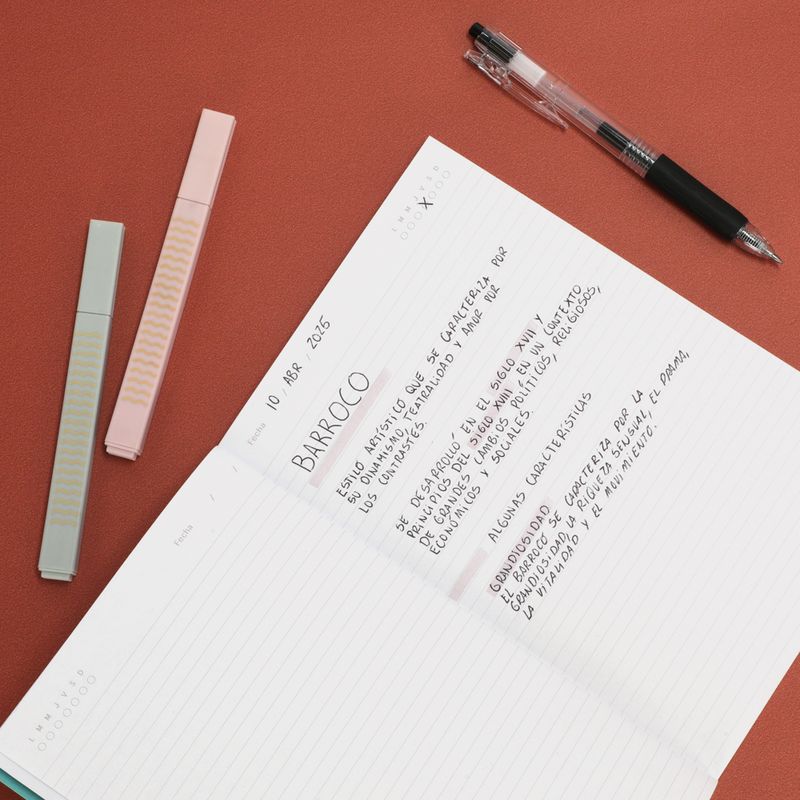 L M M J V S D
X
Fecha 10 / ABR / 2025
BARROCO
ESTILO ARTÍSTICO QUE SE CARACTERIZA POR
SU DINAMISMO, TEATRALIDAD Y AMOR POR
LOS CONTRASTES.
SE DESARROLLÓ EN EL SIGLO XVII Y
PRINCIPIOS DEL SIGLO XVIII, EN UN CONTEXTO
DE GRANDES CAMBIOS POLÍTICOS, RELIGIOSOS,
ECONÓMICOS Y SOCIALES.
ALGUNAS CARACTERÍSTICAS
GRANDIOSIDAD
EL BARROCO SE CARACTERIZA POR LA
GRANDIOSIDAD, LA RIQUEZA SENSUAL, EL DRAMA,
LA VITALIDAD Y EL MOVIMIENTO.
Fecha / /
L M M J V S D